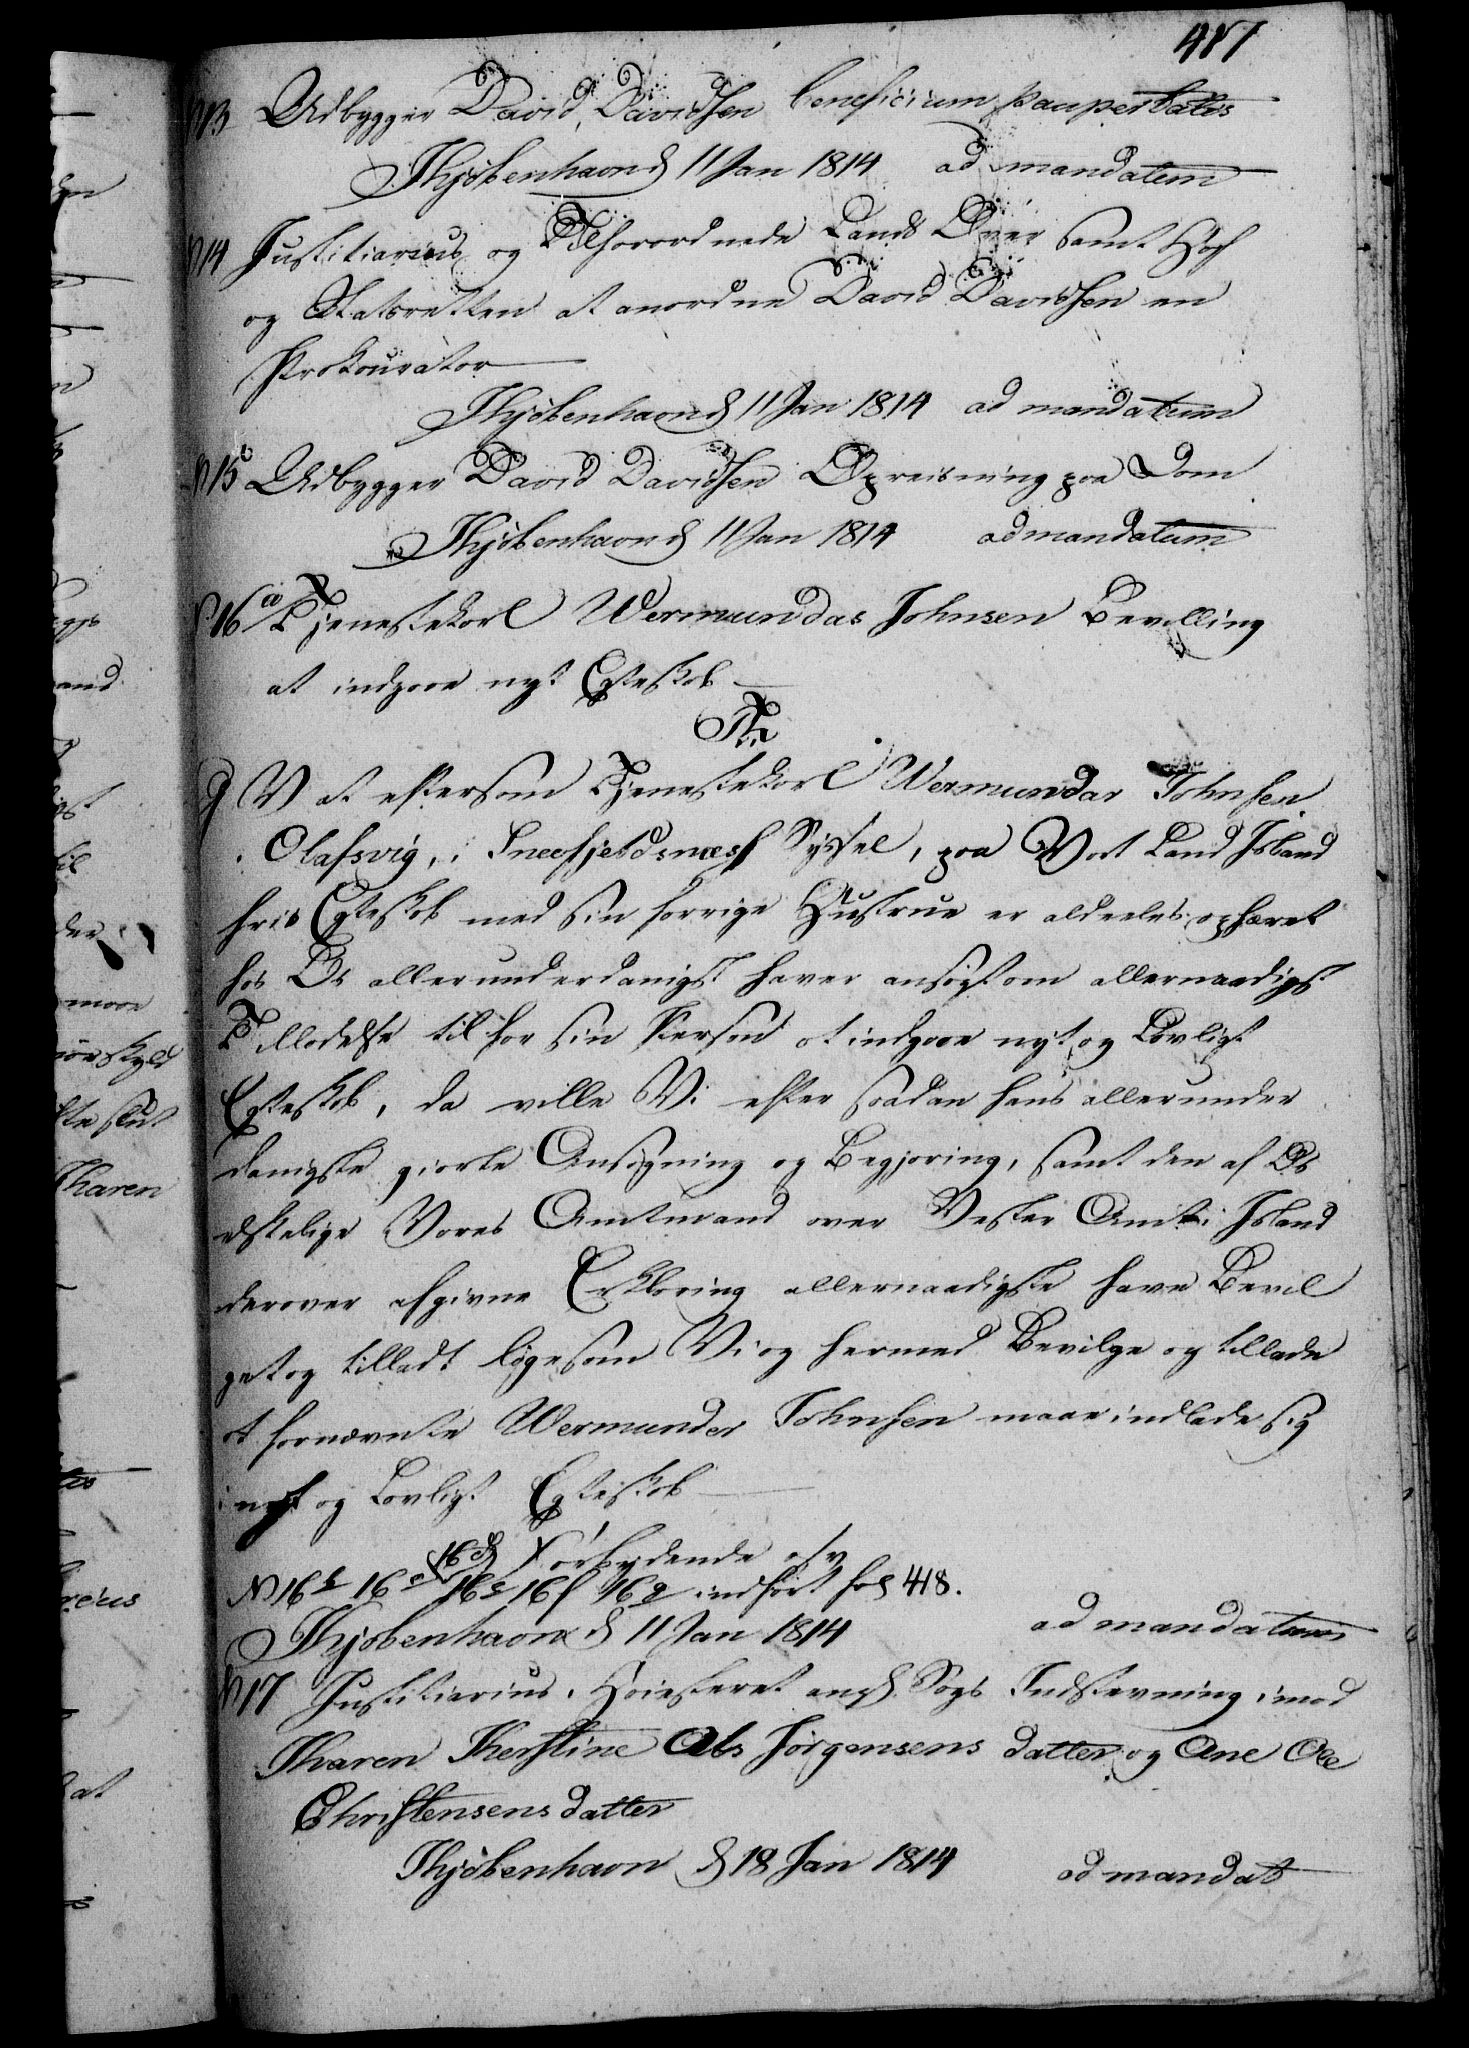 417
N 13 Udbygger David Davidsen beneficium paupertatis
Khjøbenhavn d 11 Jan 1814 ad mandatum
N 14 Justitiarius og Tilforordnede Lands Over samt Hof
og Statsretten at anordne David Davidsen en
Prokurator
Khjøbenhavn d 11 Jan 1814 ad mandatum
N 15 Udbygger David Davidsen Opreisning paa Dom
Khjøbenhavn d 11 Jan 1814 ad mandatum
N 16 a Tjenestekarl Wermundas Johnsen Bevilling
at indgaae nyt Egteskab
V at eftersom Tjenestekarl Wermundar Johnsen
i Olafsvig, i Sneefjeldsness Syssel, paa Vort Land Island
hvis Egteskab med sin forrige Hustrue er aldeeles ophævet
hos Os allerunderdanigst haver ansøgt om allernaadigst
Tilladelse til for sin Person at indgaae nyt og Lovligt
Egteskab, da ville Vi efter saadan hans allerunder
danigste giorte Ansøgning og Begjering, samt den af Os
elskelige Vores Amtmand over Vester Amt i Island
derover afgivne Erklæring allernaadigste have Bevil
get og tilladt ligesom Vi og hermed Bevilge og tillade
at fornævnte Wermunder Johnsen maae indlade sig
i nyt og Lovligt Egteskab
Forbydende
N 16 b 16 c 16 d 16 e 16 f 16 g indført fol 418.
Khjøbenhavn d 11 Jan 1814 ad mandatum
N 17 Justitiarius i Høiesteret Sags Indstevning imod
Kharen Kerstine Ols Jørgensens datter og Ane Ole
Christensens datter
Khjøbenhavn d 18 Jan 1814 ad mandat